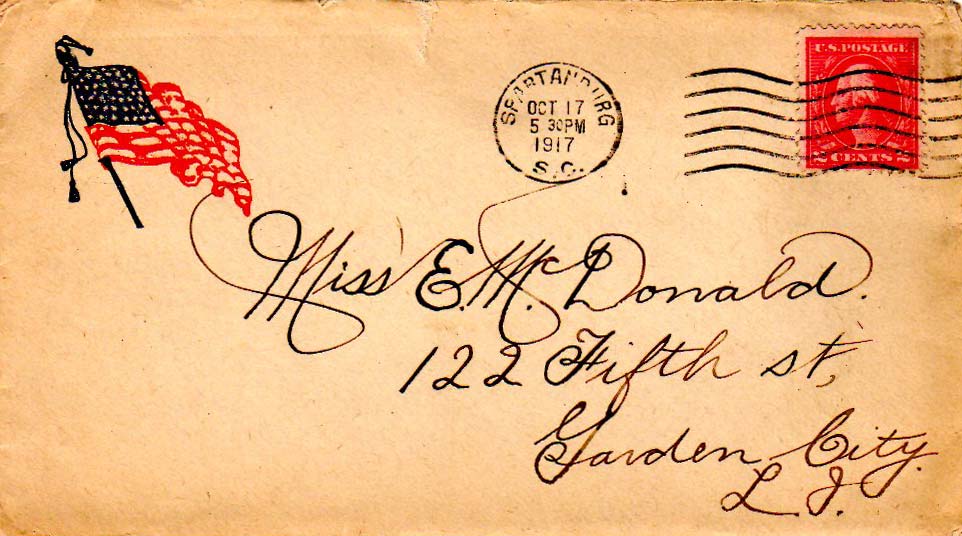 SPARTANBURG
OCT 17
5 30PM
1917
S.C.
U.S. POSTAGE
2 CENTS 2
Miss E. McDonald.
122 Fifth st,
Garden City.
L. I.